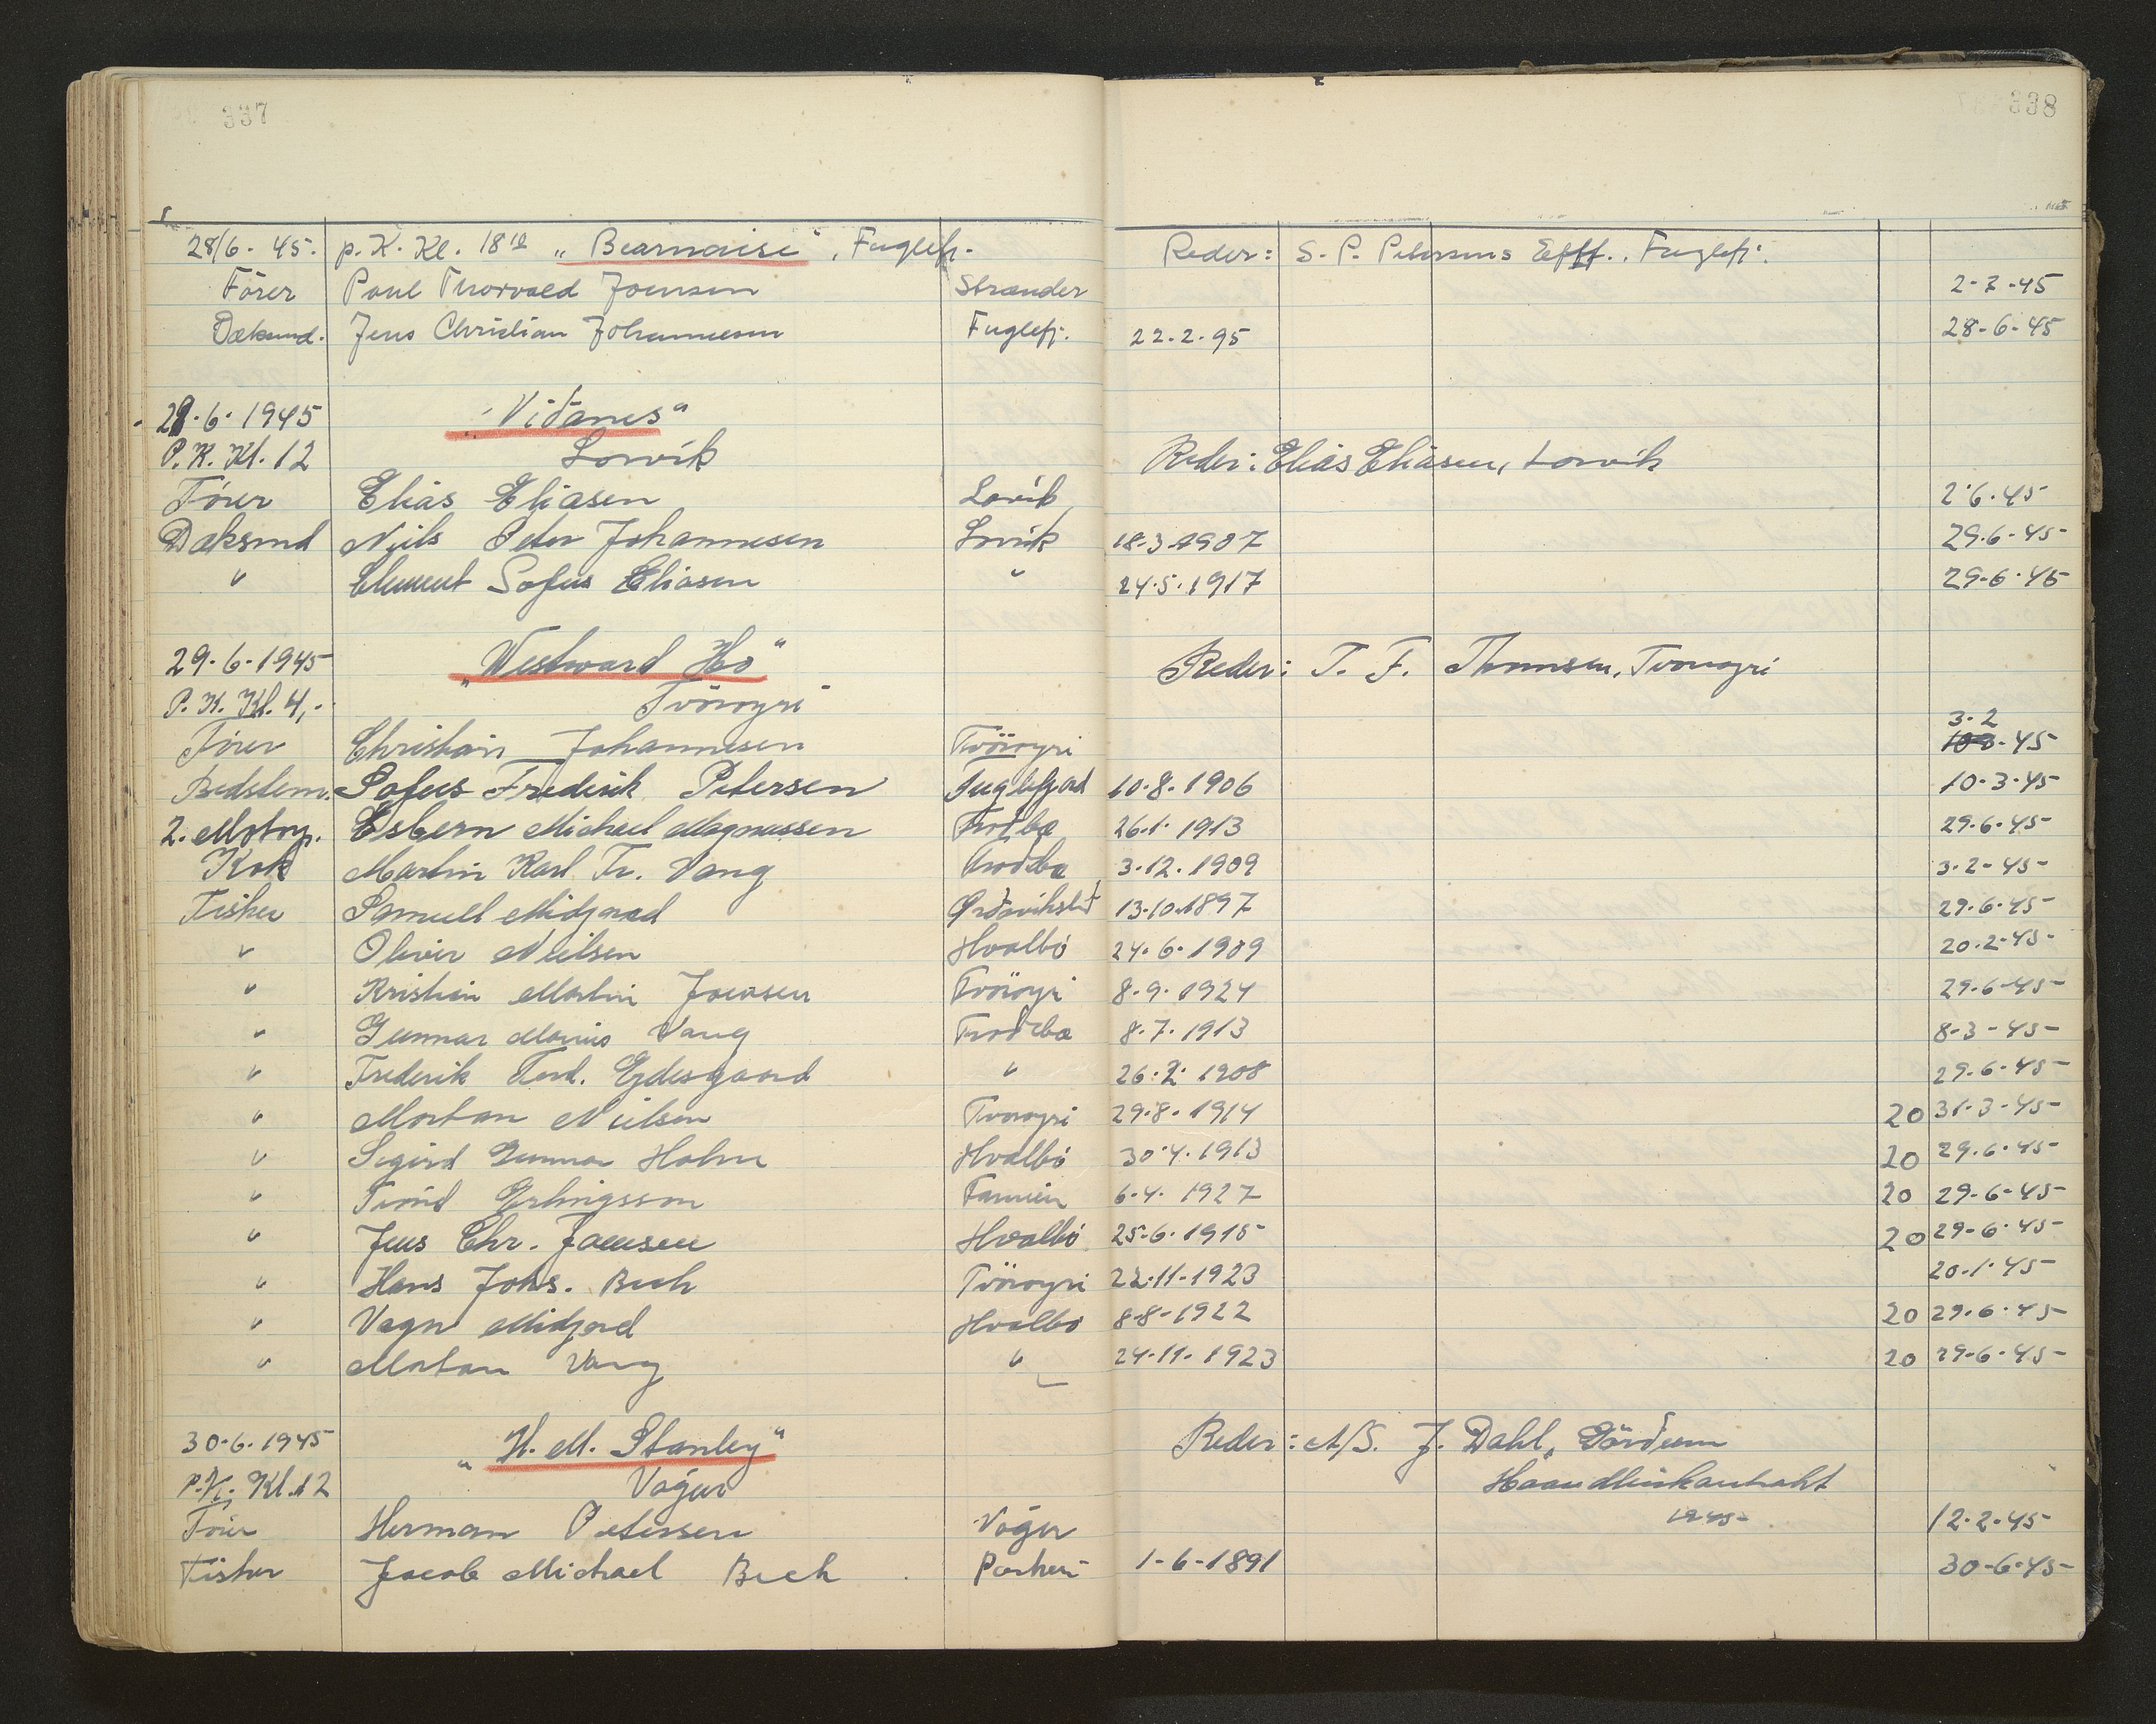 337
338
28/6 - 45. p. K. Kl. 18 10 „Bearnaise“, Fuglefj. Reder: S. P. Petersens Eftf., Fuglefj.
Förer Poul Thorvald Joensen Strander 2-2-45
Dæksmd. Jens Christian Johannesen Fuglefj. 22.2.95 28-6-45
6. 1945 „Vidanes“
P. K. Kl. 12 Lorvik Reder: Eliás Eliásen, Lorvik
Förer Eliás Eliasen Lorvik 2.6.45
Dæksmd Niels Peter Johannesen Lorvik 18-3-1907 29.6-45
" Clement Sofus Eliasen " 24.5.1917 29.6.45
29-6-1945 „Westward Ho“ Reder: T. F. Thomsen, Tvöroyri
P. K. Kl. 4,- Tvöroyri
Förer Christian Johannesen Tvöroyri 3.2-45
Bedstem. Sofus Frederik Petersen Fuglefjord 10.8.1906 10-3-45
2. Motorp. Esbern Michael Magnussen 26.1.1913 29.6.45
Kok Martin Karl Fr. Vang Frodebø 3.12.1909 3-2-45
Fisker Samuel Midjord 13.10.1897 29.6.45
" Oliver Nielsen Hvalbö 24.6.1909 20.2-45
" Kristian Martin Joensen Tvöroyri 8.9.1924 29.6-45
" Gunnar Marius Vang Frodebø 8.7.1913 8-3-45
" Frederik Ferd. Ejdesgaard " 26.2.1908 29.6-45
" Mortan Nielsen Tvöroyri 29.8.1914 20 31-3-45
" Sigurd Gunnar Holm Hvalbö 30.4.1913 20 29.6.45
" Erlingsson Famien 6.4.1927 20 29-6-45
" Jens Chr. Joensen Hvalbö 25-6-1915 20 29-6-45
" Hans Johs. Bech Tvöroyri 22.11-1923 20.1.45
" Vagn Midjord Hvalbö 8-8-1922 20 29.6.45
" Mortan Vang " 24.11.1923 20 29-6-45
30-6-1945 „H. M. Stanley“ Reder: A/S. J. Dahl,
P.K. Kl. 12 Vágur Haandlinekontrakt
1945
Förer Herman Petersen Vágur 12-2-45
Fisker Jacob Michael Bech Porkeri 1-6-1891 30-6-45